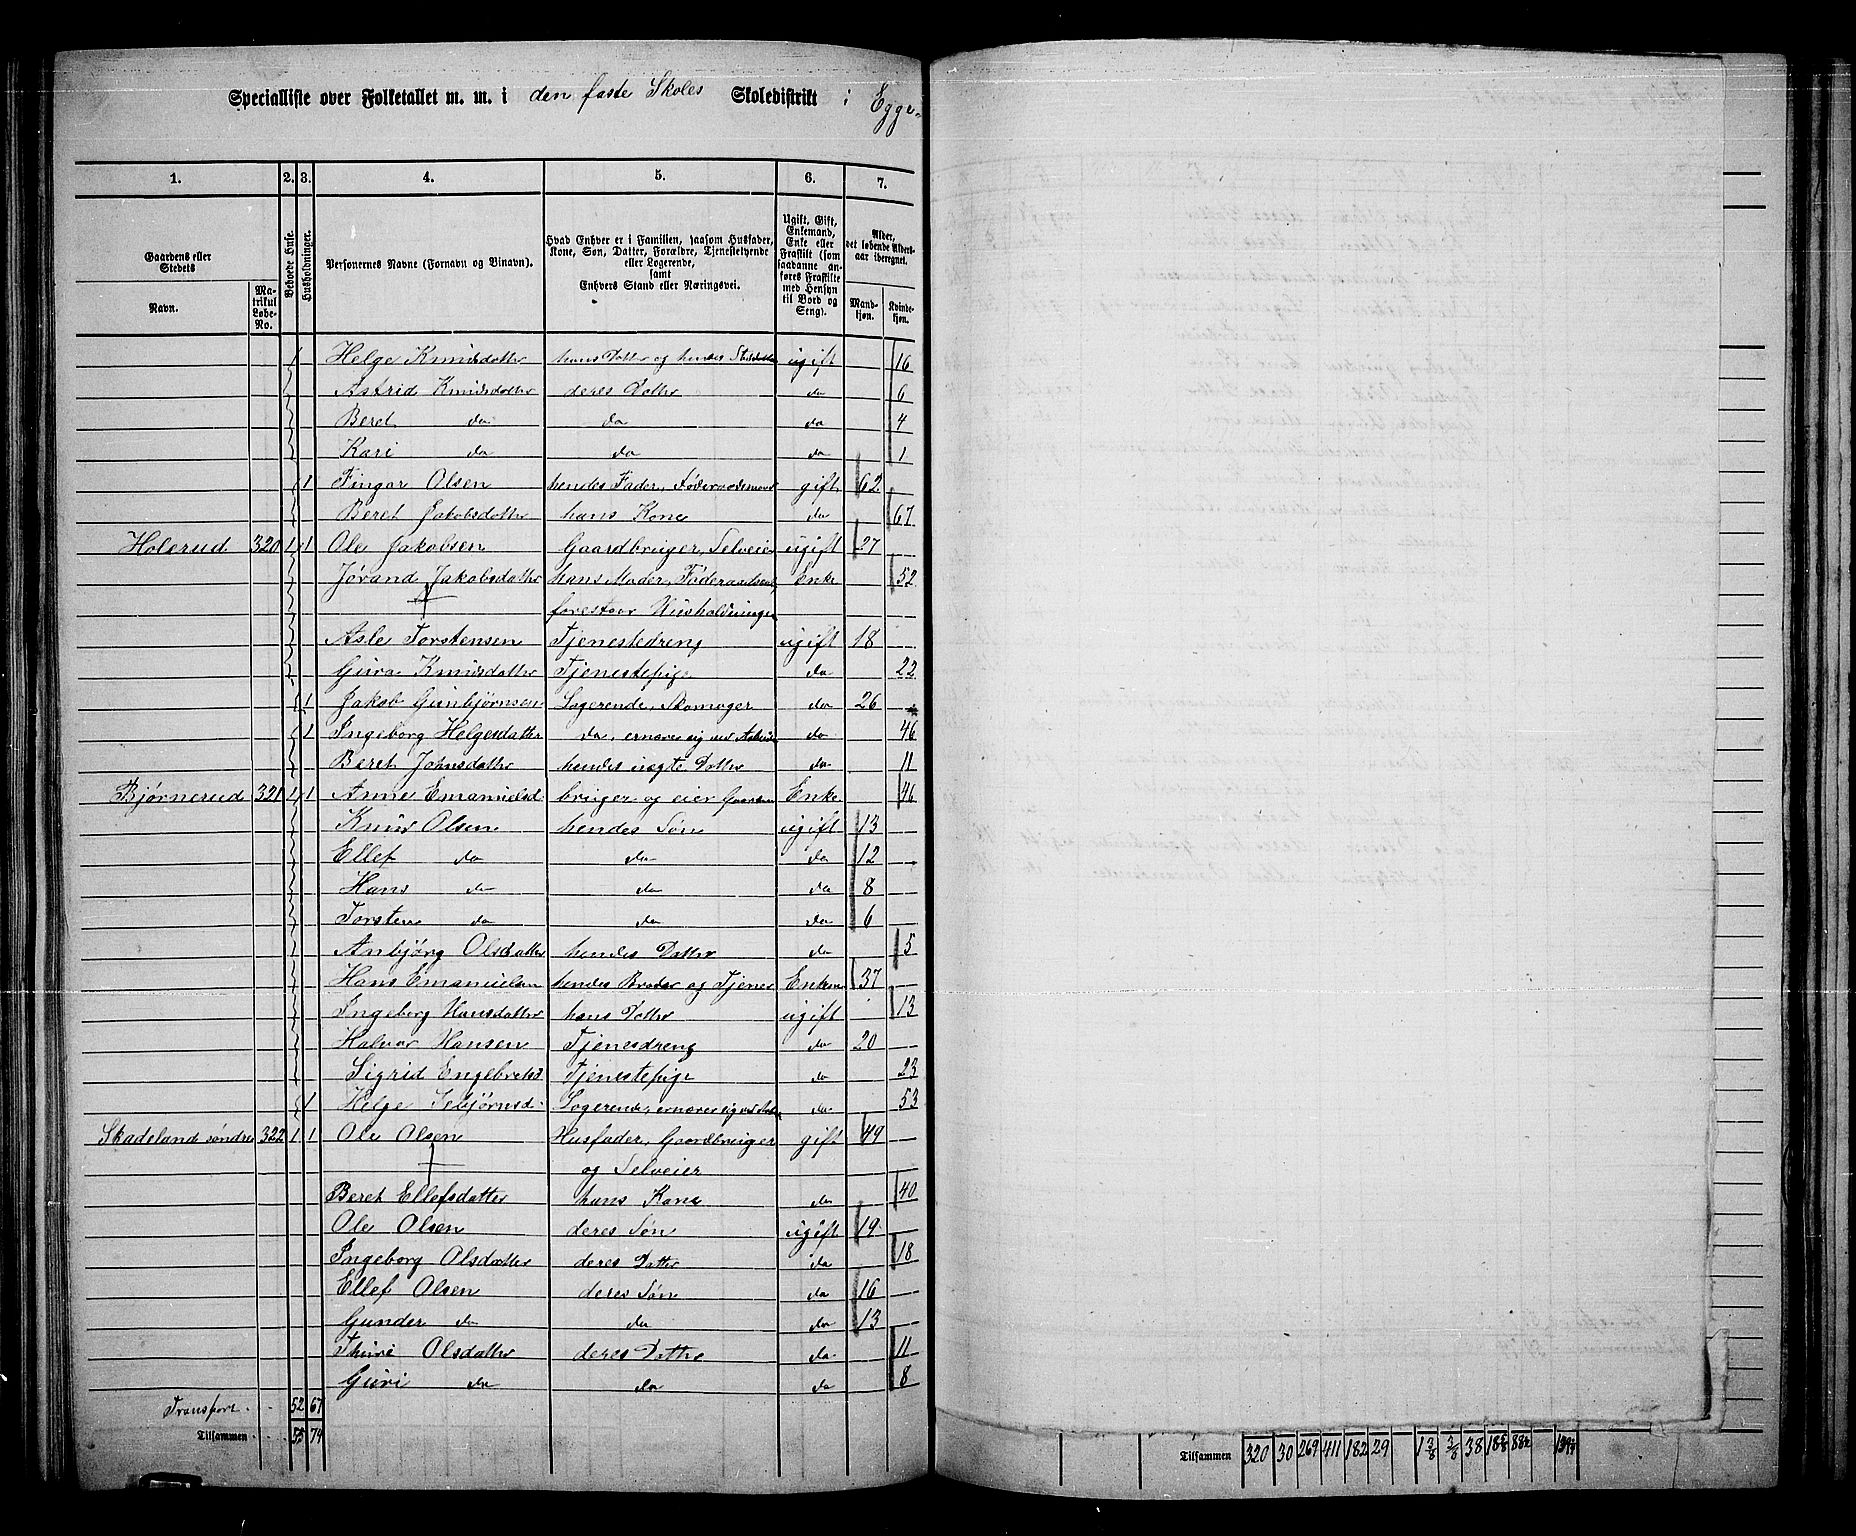 Specialliste over Folketallet m. m. i den faste Skoles Skoledistrikt i Egge-
1. 2. 3. 4. 5. 6. 7.
Gaardens eller Stedets
Navn.
Matrikul Løbe-No.
Beboede Huse.
Husholdninger.
Personernes Navne (Fornavn og Tilnavn).
Hvad Enhver er i Familien, saasom Husfader, Kone, Søn, Datter, Forældre, Tjenestetyende eller Logerende, samt Enhvers Stand eller Næringsvei.
Ugift, Gift, Enkemand, Enke eller Fraskilt (som saadanne anføres Fraskilte med Hensyn til Bord og Seng).
Alder, det løbende Aldersaar iberegnet.
Mandkjøn.
Kvindekjøn.
Helge Knudsdatter hans Datter og hendes Stifdatter ugift 16
Astrid Knudsdatter deres Datter do 6
Beret do do do 4
Kari do do do 1
1 Fingar Olsen hendes Fader, Føderaadsmand gift 62
Beret Jakobsdatter hans Kone do 67
Holerud 320 1 1 Ole Jakobsen Gaardbruger, Selveier ugift 27
Jørand Jakobsdatter hans Moder, Føderaadsenke Enke 52
forestaar Husholdningen
Asle Torstensen Tjenestedreng ugift 18
Guro Knudsdatter Tjenestepige do 22
1 Jakob Gunbjørnsen Logerende, Skomager do 26
1 Ingeborg Helgesdatter do, ernærer sig ved Arbeide do 46
Beret Johnsdatter hendes uægte Datter do 11
Bjørnerud 321 1 1 Anne Emanuelsd. bruger og eier Gaarden Enke 46
Knud Olsen hendes Søn ugift 13
Ellef do do do 12
Hans do do do 8
Torsten do do do 6
Anbjørg Olsdatter hendes Datter do 5
Hans Emanuelsen hendes Broder og Tjener Enkem 37
Ingeborg Hansdatter hans Datter ugift 13
Halvor Hansen Tjenesdreng do 20
Sigrid Engebretsd. Tjenestepige do 23
1 Helge Isbjørnsd. Logerende, ernærer sig ved Arb. do 53
Skadeland søndre 322 1 1 Ole Olsen Husfader, Gaardbruger gift 49
og Selveier
Beret Ellefsdatter hans Kone do 40
Ole Olsen deres Søn ugift 19
Ingeborg Olsdatter deres Datter do 18
Ellef Olsen deres Søn do 16
Gunder do do do 13
Thuri Olsdatter deres Datter do 11
Guri do do do 8
Transport 52 67
Tilsammen 55 74
Tilsammen 320 30 269 411 182 29 1 3/8 3/8 38